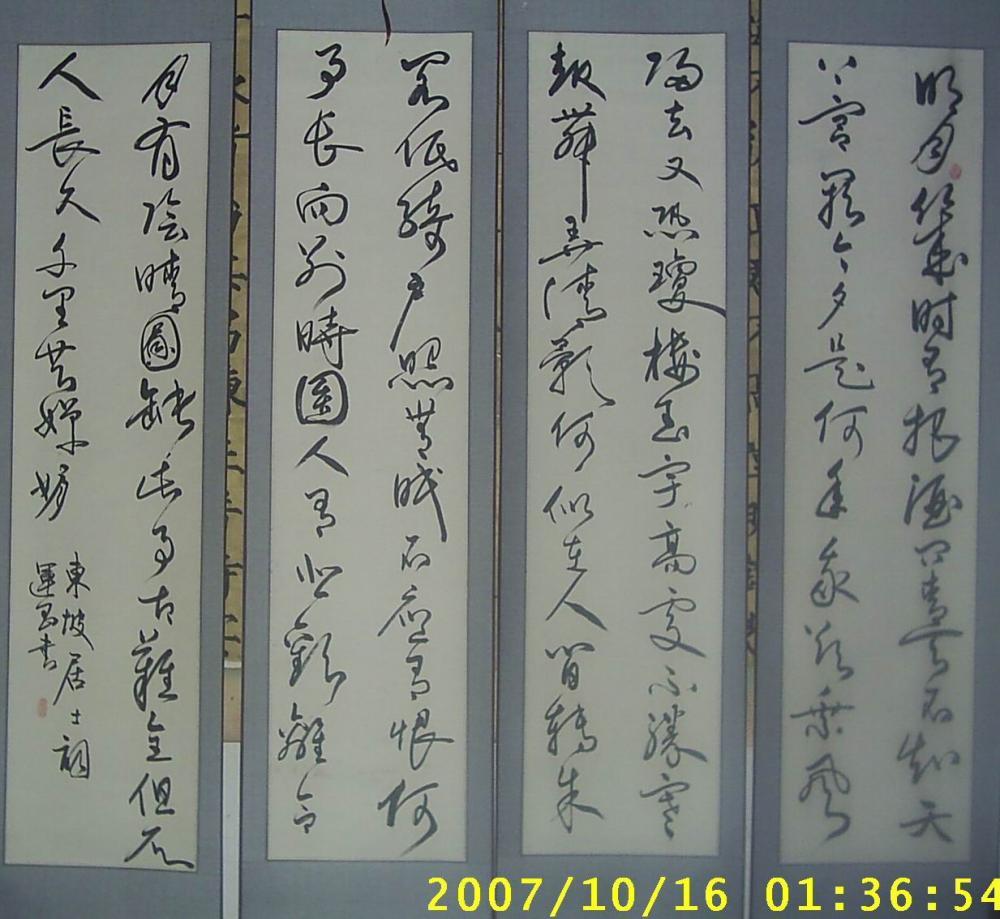 明月幾时有把酒问青天不知天
上宮闕今夕是何年我欲乘風
歸去又恐瓊樓玉宇高處不勝寒
起舞弄清影何似在人間轉朱
閣低綺户照無眠不應有恨何
事長向别時圓人有悲歡離合
月有陰晴圓缺此事古難全但願
人長久千里共嬋娟
東坡居士詞
運書
2007/10/16 01:36:54